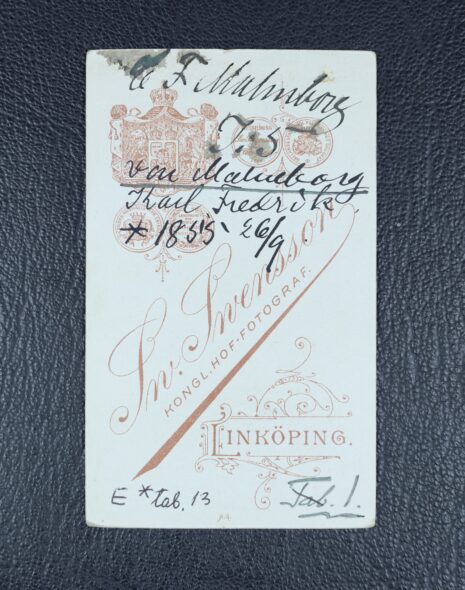 F Malmborg
I:5
von Malmborg
Karl Fredrik
* 1855 26/9
Sv. Svensson
KONGL. HOF-FOTOGRAF.
LINKÖPING.
E * tab. 13
Tab. 1.